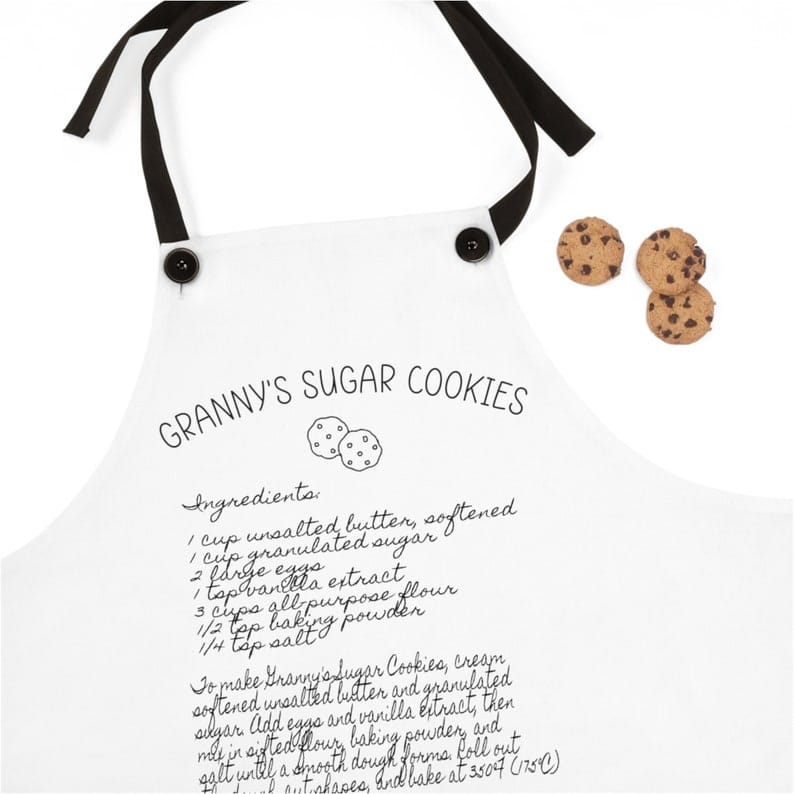 GRANNY'S SUGAR COOKIES
Ingredients:
1 cup unsalted butter, softened
1 cup granulated sugar
2 large eggs
1 tsp vanilla extract
3 cups all-purpose flour
1/2 tsp baking powder
1/4 tsp salt
To make Granny's Sugar Cookies, cream
softened unsalted butter and granulated
sugar. Add eggs and vanilla extract, then
mix in sifted flour, baking powder, and
salt until a smooth dough forms. Roll out
the dough, cut shapes, and bake at 350°F (175°C)